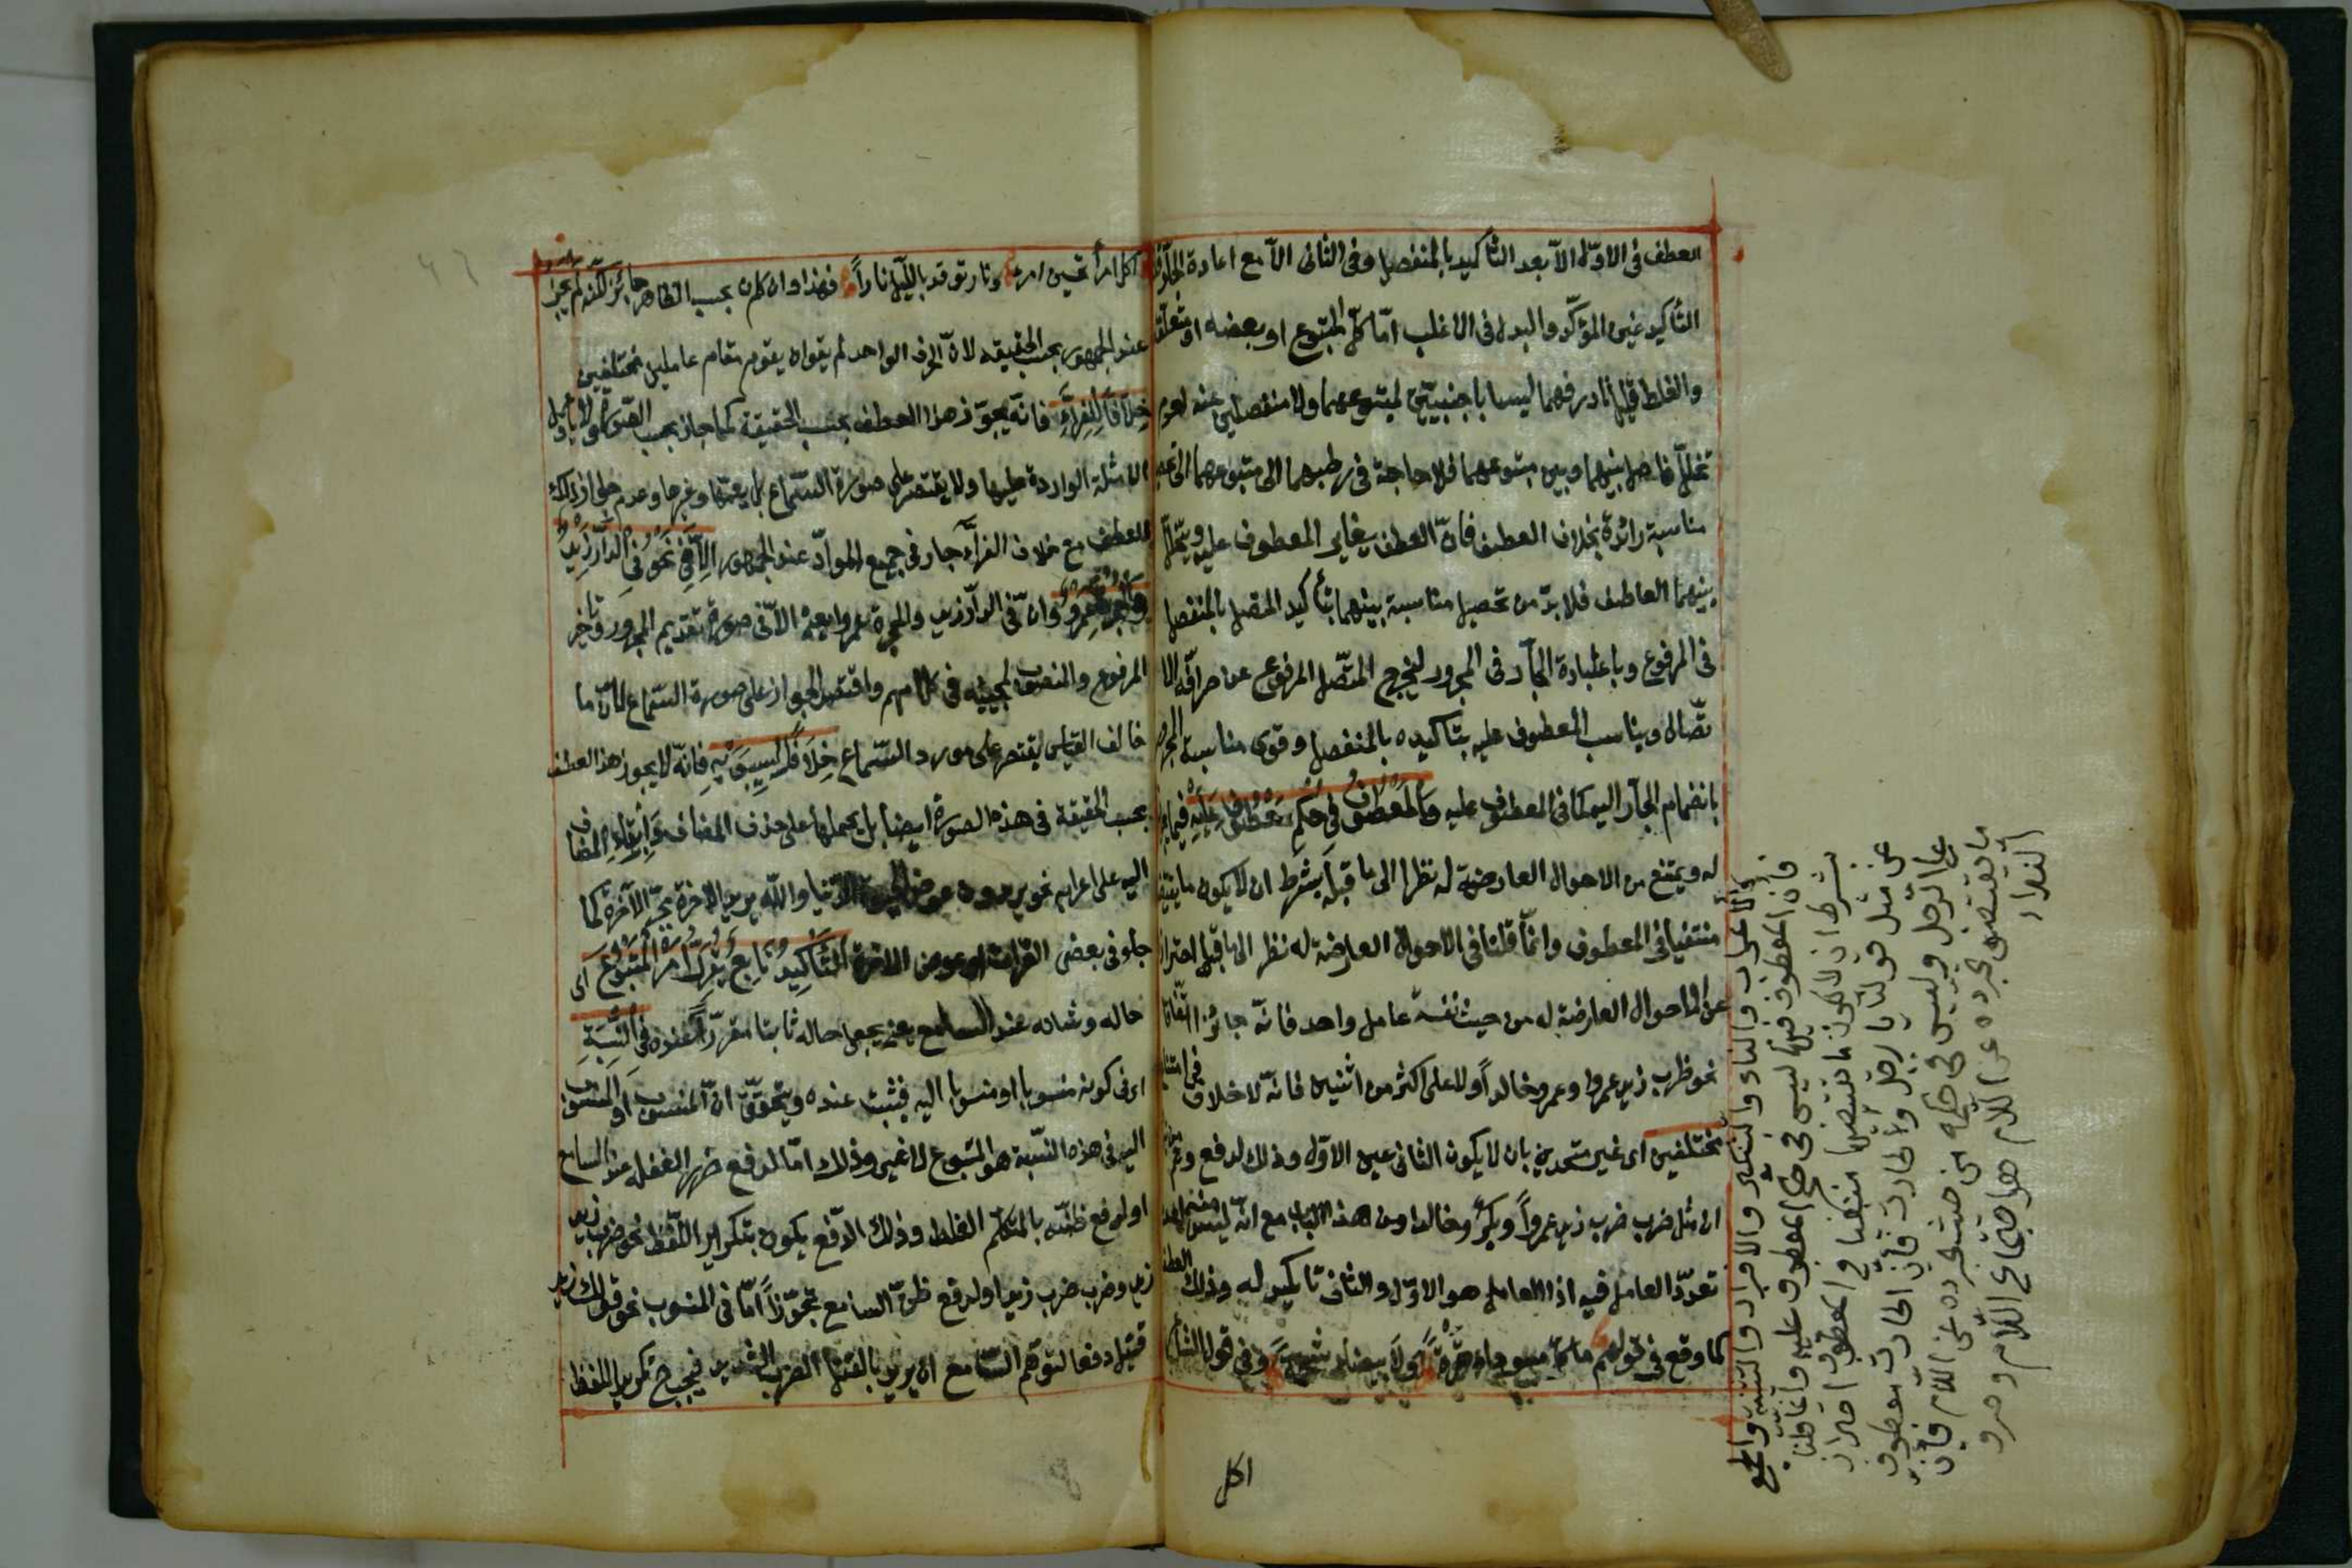 العطف فى الاوّل الاّ بعد التأكيد بالمنفصل وفى الثانى الاّ مع اعادة الجارّ
التأكيد عين المؤكّد والبدل فى الاغلب امّا كلّ المتبوع او بعضه او متعلّقه
والغلط قليل نادر فهما ليسا باجنبيّين لمتبوعهما ولا منفصلين عنه لعدم
تخلّل فاصل بينهما وبين متبوعهما فلا حاجة فى ربطهما الى متبوعهما الى تحصيل
مناسبة زائدة بخلاف العطف فانّ العطف يغاير المعطوف عليه ويتخلّل
بينهما العاطف فلا بدّ من تحصيل مناسبة بينهما بتأكيد المتصل بالمنفصل
فى المرفوع وباعادة الجارّ فى المجرور ليخرج المتّصل المرفوع عن صرافة الا
تّصال ويناسب المعطوف عليه بتاكيده بالمنفصل وقوى مناسبة المجرور
بانضمام الجارّ اليه كما فى المعطوف عليه وَالْمَعْطُوفُ فِي حُكْمِ الْمَعْطُوفِ عَلَيْهِ فيما يجوز
له ويمتنع من الاحوال العارضة له نظرا الى ما قبله بشرط ان لا يكون ما يقتضيها
منتفيا فى المعطوف وانّما قلنا فى الاحوال العارضة له نظر الى ما قبله احترازا
عن الاحوال العارضة له من حيث نفسه عامل واحد فانّه جائز اتّفاقا
نحو ضرب زيد عمروا وعمرو خالداً ولا على اكثر من اثنين فانّه لا خلاف فى امتناعه
مختلفين اى غير متّحدين بان لا يكون الثانى عين الاوّل وذلك لدفع وهم
ان مثل ضرب ضرب زيد عمرواً وبكرٌ وخالدا من هذا الباب مع انّه ليس منه لعدم
تعدّد العامل فيه اذا العامل هو الاوّل والثانى تاكيد له وذلك العطف
كما وقع فى قولهم ما كلّ سوداء تمرة ولا بيضاء شحمة وفى قول الشاعر
اكل
والاعراب والبناء والتنكير والافراد والتثنية والجمع
فانّ المعطوف فيها ليس فى حكم المعطوف عليه وانّما قلنا
بشرط ان لا يكون ما يقتضيها منتفيا فى المعطوف احترازا
عن مثل قولنا يا رجل والحارث فانّ الحارث معطوف
على الرجل وليس فى حكمه من حيث تجرّده عن اللام فانّ
ما يقتضى تجرده عن اللام هو اجتماع اللام وحرف
النداء
اكلّ امرأ تحسبين امرءً ونار توقد بالليل نارا فهذا وان كان بحسب الظاهر جائز لكنّه لم يجز
عند الجمهور بحسب الحقيقه لانّ الحرف الواحد لم يقو ان يقوم مقام عاملين مختلفين
خِلَافًا لِلْفَرَّاءِ فانّه يجوّز هذا العطف بحسب الحقيقة كما جاز بحسب الصّورة ولا يأوّل
الامثلة الواردة عليها ولا يقتصر على صورة السّماع بل يعمّها وغيرها وعدم جواز ذلك
العطف مع خلاف الفرّاء جار فى جميع الموادّ عند الجمهور اِلَّا فِي نَحْوِ فِي الدَّارِ زَيْدٌ
وَالْحُجْرَةِ عَمْرٌو وانّ فى الدار زيدا والحجرة عمروا يعنى الاّ فى صورة تقديم المجرور وتاخير
المرفوع والمنصوب لمجيئه فى كلامهم واقتصر الجواز على صورة السّماع لانّ ما
خالف القياس يقتصر على مورد السّماع خِلَافًا لِسِيبَوَيْهِ فانّه لا يجوز هذا العطف
بحسب الحقيقة فى هذه الصورة ايضا بل يحملها على حذف المضاف وابقاء المضاف
اليه على اعرابه نحو يريدون عرض الدّنيا واللّه يريد الاخرة بجرّ الآخرة كما
جاء فى بعض القراءة اى عرض الاخرة اَلتَّأْكِيدُ تَابِعٌ يُقَرِّرُ أَمْرَ الْمَتْبُوعِ اى
حاله وشانه عند السامع يعنى يجعل حاله ثابتا مقرّرا عنده فِي النِّسْبَةِ
اى فى كونه منسوبا او منسوبا اليه فيثبت عنده ويتحقّق انّ المنسوب او المنسوب
اليه فى هذه النّسبة هو المتبوع لا غير وذلك امّا لدفع ضرر الغفلة عن السامع
او لدفع ظنّه بالمتكلّم الغلط وذلك الدّفع يكون بتكرير اللّفظ نحو ضرب زيد
زيد وضرب ضرب زيد او لدفع ظنّ السامع تجوّزاً امّا فى المنسوب نحو قولك زيد
قتيل دفعا لتوهّم السّامع ان يريد بالقتل الضرب الشديد فيجب ح تكرير اللفظ